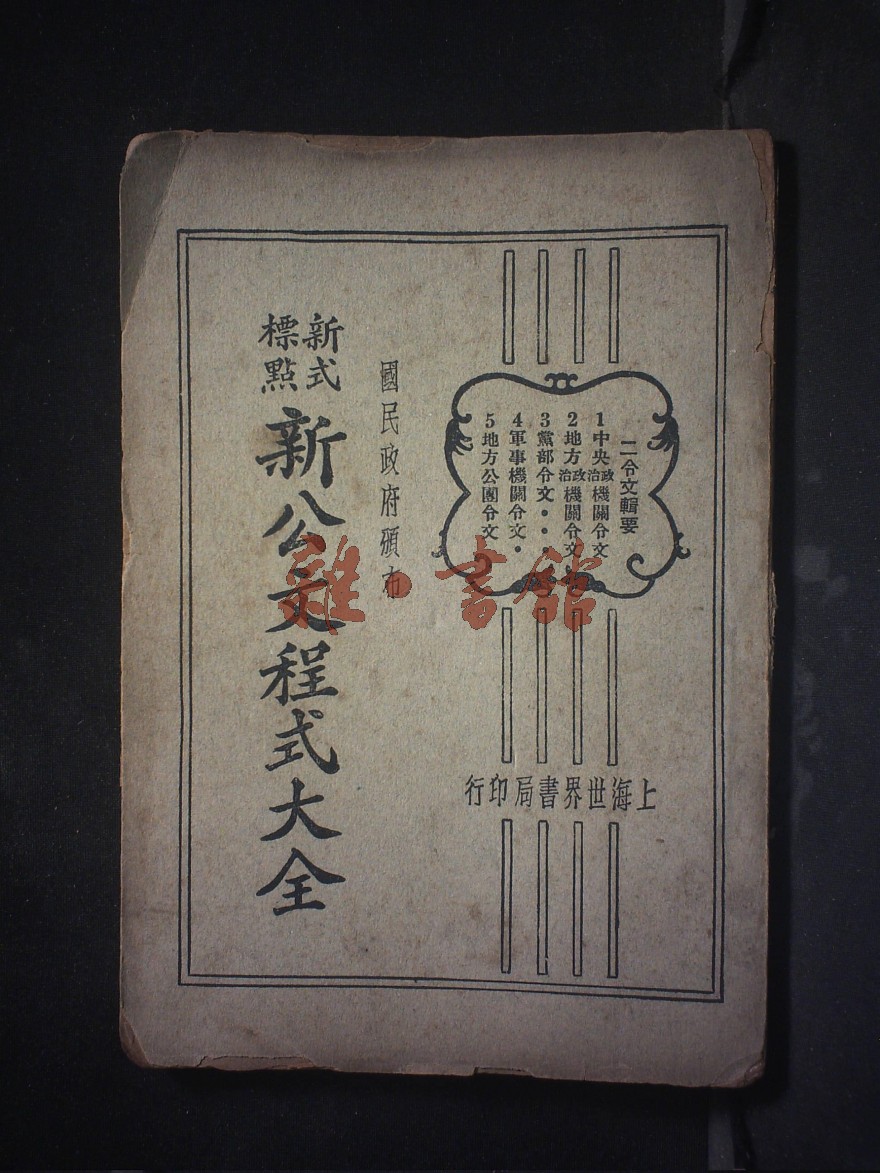 二令文輯要
1中央政治機關令文
2地方政治機關令文
3黨部令文・・・
4軍事機關令文・
5地方公團令文
上海世界書局印行
國民政府頒布
新式標點
新公文程式大全
雜・書館